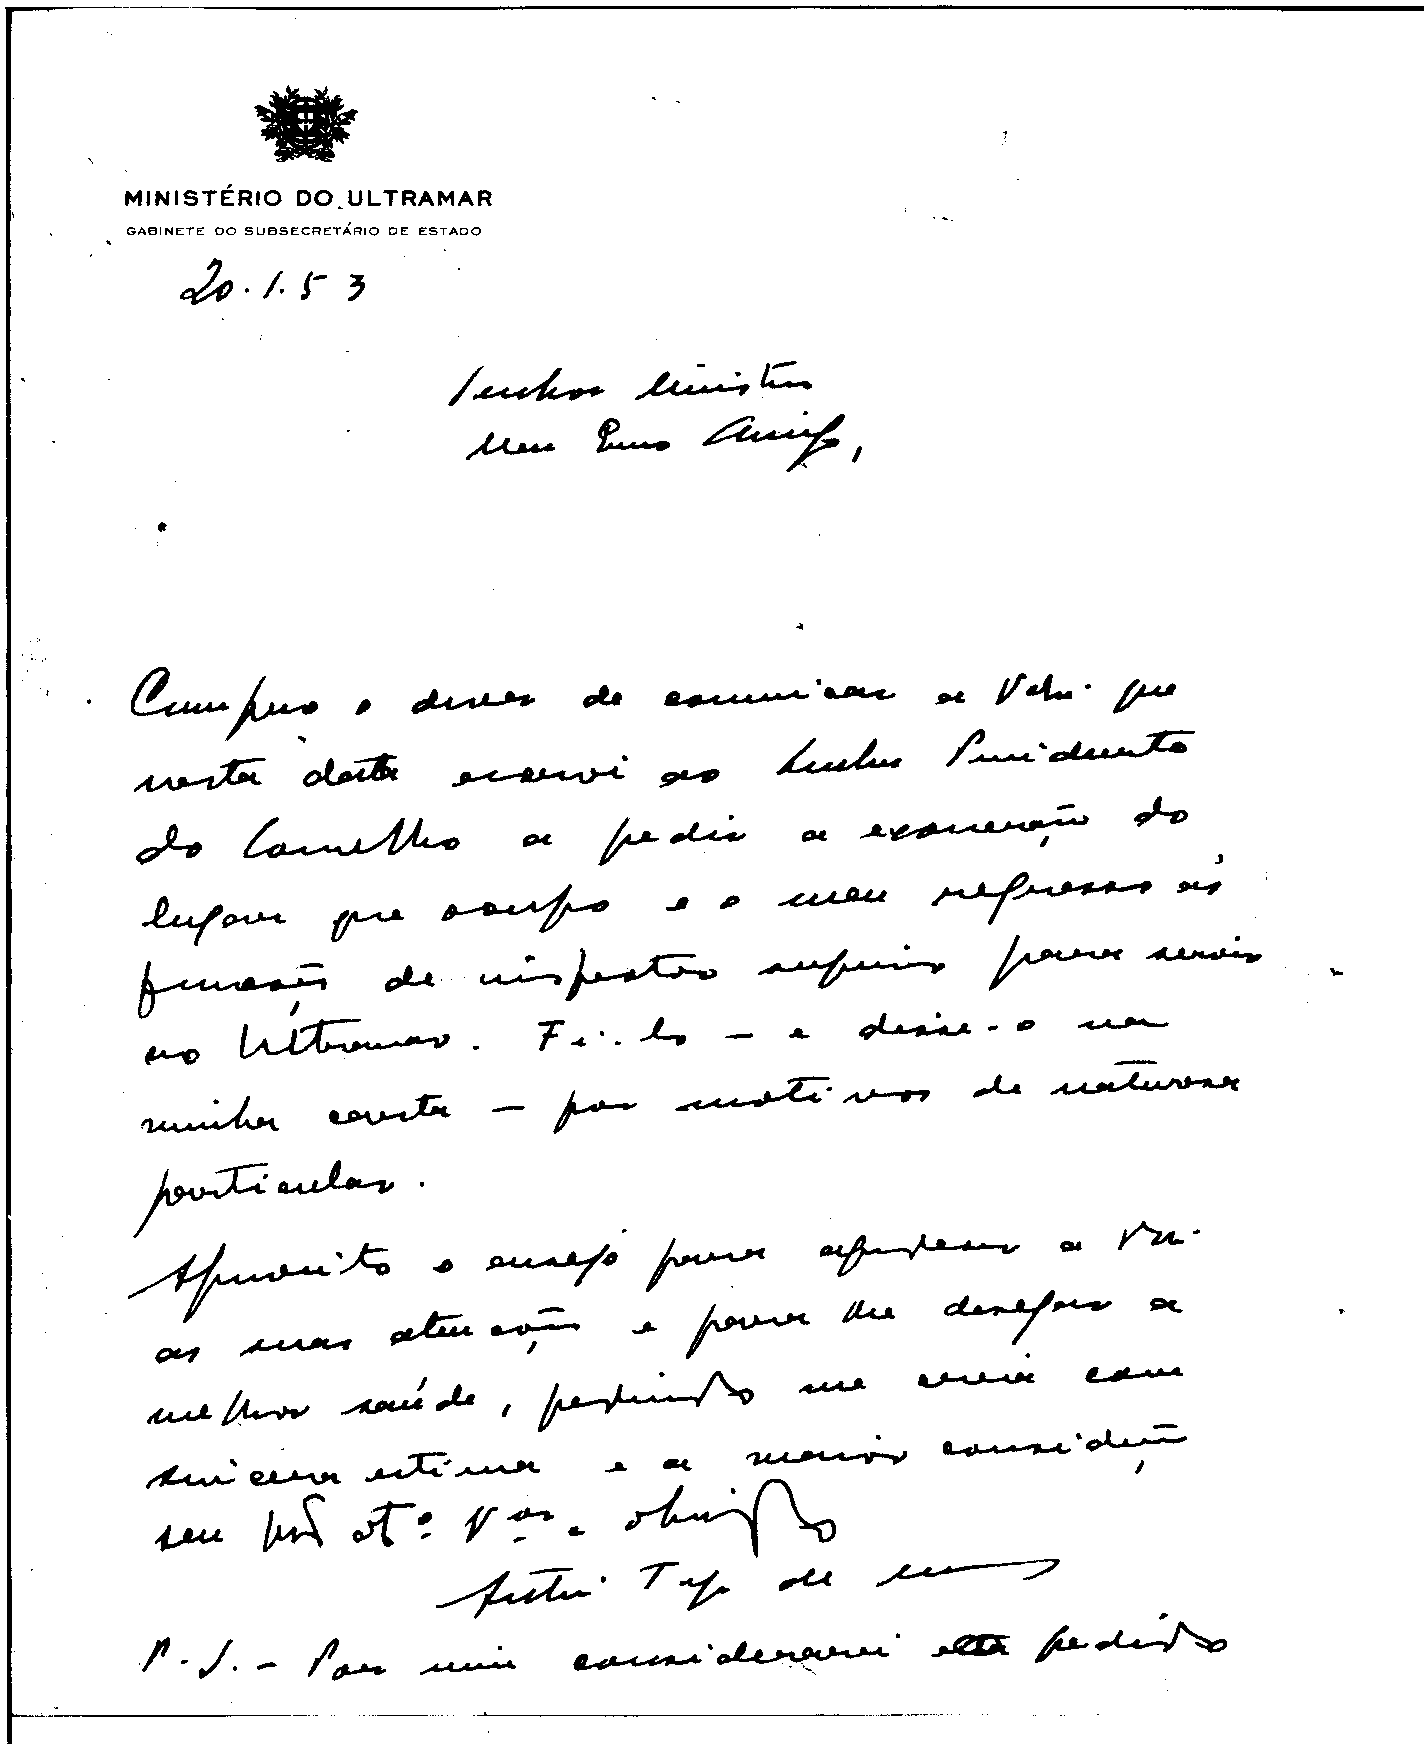 MINISTÉRIO DO ULTRAMAR
GABINETE DO SUBSECRETÁRIO DE ESTADO
20.1.53
Senhor Ministro
Meu Exmo Amigo,
Cumpro o dever de comunicar a V. Ex. que
nesta data escrevi ao Senhor Presidente
do Conselho a pedir a exoneração do
lugar que ocupo e o meu regresso às
funções de inspector superior para servir
no Ultramar. Fi-lo - e disse-o na
minha carta - por motivos de natureza
particular.
Aproveito o ensejo para agradecer a V. Ex.
as suas atenções e para lhe desejar a
melhor saúde, pedindo me creia com
sincera estima e a maior consideração
seu at.º V.or e obrigado
de
P.S. - Por mim considerarei este pedido